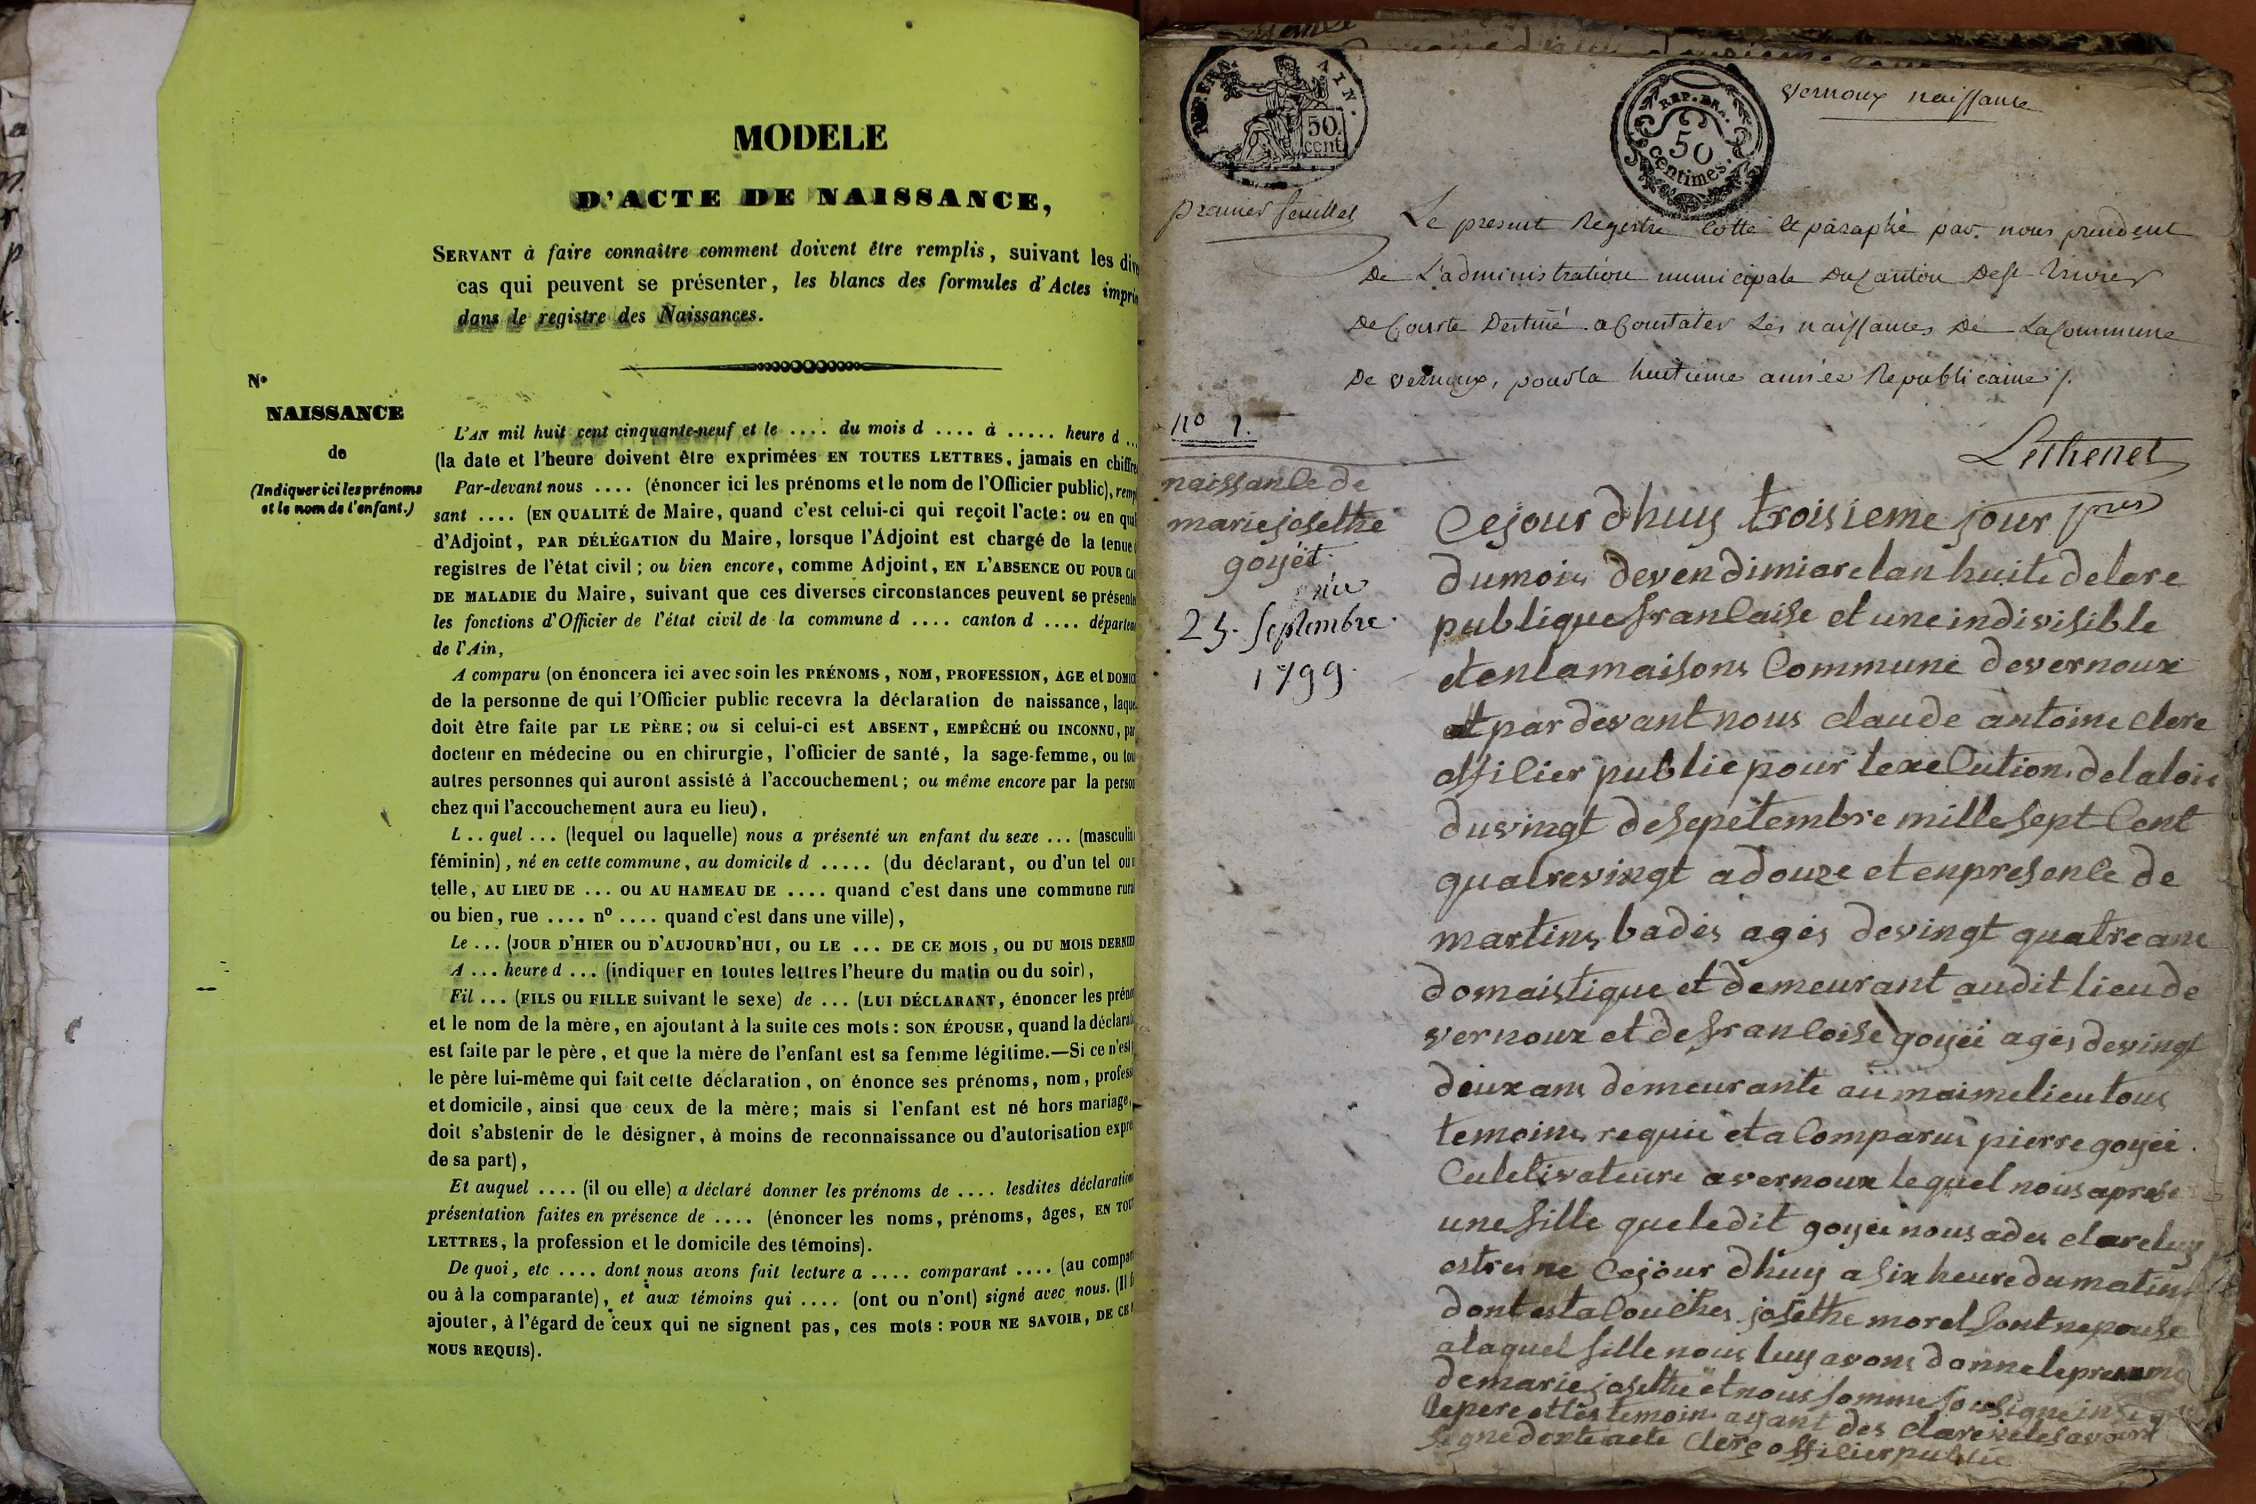 MODELE
D'ACTE DE NAISSANCE,
SERVANT à faire connaître comment doivent être remplis, suivant les div
cas qui peuvent se présenter, les blancs des formules d'Actes impri
dans le registre des Naissances.
N°
NAISSANCE
de
(Indiquer ici les prénoms
et le nom de l'enfant.)
L'AN mil huit cent cinquante-neuf et le .... du mois d .... à ..... heure d ...
(la date et l'heure doivent être exprimées EN TOUTES LETTRES, jamais en chiffre
Par-devant nous .... (énoncer ici les prénoms et le nom de l'Officier public), remp
sant .... (EN QUALITÉ de Maire, quand c'est celui-ci qui reçoit l'acte: ou en qual
d'Adjoint, PAR DÉLÉGATION du Maire, lorsque l'Adjoint est chargé de la tenue
registres de l'état civil; ou bien encore, comme Adjoint, EN L'ABSENCE OU POUR CA
DE MALADIE du Maire, suivant que ces diverses circonstances peuvent se présente
les fonctions d'Officier de l'état civil de la commune d .... canton d .... départem
de l'Ain,
A comparu (on énoncera ici avec soin les PRÉNOMS, NOM, PROFESSION, AGE et DOMIC
de la personne de qui l'Officier public recevra la déclaration de naissance, laque
doit être faite par LE PÈRE; ou si celui-ci est ABSENT, EMPÊCHÉ OU INCONNU, par
docteur en médecine ou en chirurgie, l'officier de santé, la sage-femme, ou tou
autres personnes qui auront assisté à l'accouchement; ou même encore par la person
chez qui l'accouchement aura eu lieu),
L .. quel ... (lequel ou laquelle) nous a présenté un enfant du sexe ... (masculin
féminin), né en cette commune, au domicile d ..... (du déclarant, ou d'un tel ou
telle, AU LIEU DE ... OU AU HAMEAU DE .... quand c'est dans une commune rura
ou bien, rue .... n° .... quand c'est dans une ville),
Le ... (JOUR D'HIER OU D'AUJOURD'HUI, OU LE ... DE CE MOIS, OU DU MOIS DERNIER
A ... heure d ... (indiquer en toutes lettres l'heure du matin ou du soir),
Fil ... (FILS OU FILLE suivant le sexe) de ... (LUI DÉCLARANT, énoncer les prénom
et le nom de la mère, en ajoutant à la suite ces mots: SON ÉPOUSE, quand la déclarat
est faite par le père, et que la mère de l'enfant est sa femme légitime.—Si ce n'est
le père lui-même qui fait cette déclaration, on énonce ses prénoms, nom, profess
et domicile, ainsi que ceux de la mère; mais si l'enfant est né hors mariage,
doit s'abstenir de le désigner, à moins de reconnaissance ou d'autorisation expre
de sa part),
Et auquel .... (il ou elle) a déclaré donner les prénoms de .... lesdites déclaration
présentation faites en présence de .... (énoncer les noms, prénoms, âges, EN TOUT
LETTRES, la profession et le domicile des témoins).
De quoi, etc .... dont nous avons fait lecture a .... comparant .... (au compar
ou à la comparante), et aux témoins qui .... (ont ou n'ont) signé avec nous. (Il f
ajouter, à l'égard de ceux qui ne signent pas, ces mots: POUR NE SAVOIR, DE CE
NOUS REQUIS).
REP. FRA. AIN.
50 cent
REP. FR.
50
centimes.
vernoux naissance
premier feuillet
Le present Registre Cotté et paraphé par nous president
De L'administration municipale Du Canton De St Trivier
De Courte Destiné a Constater Les naissances De La Commune
De vernoux, pour la huitieme année Republicaine /.
Lethenet
pres
n° 1.
naissance de
marie josethe
goyët
née
25. Septembre
1799.
Cejour dhuy troisieme jour
dumois devendimiare lan huite delare
publique francaise et une indivisible
et en la maisons Commune devernoux
et par devant nous claude antoine clere
offilier publie pour lexelution delaloie
duvingt desepetembre mille sept Cent
quatrevingt adouze et enpresenle de
martins badés agés devingt quatre ans
domaistique et demeurant audit lieu de
vernoux et de francoise goyëi agés devingt
deuxans demeurante au maime lieu tous
temoins requie et a Comparus pierre goyëi
Culetivateure avernoux le quel nous aprese
une fille queledit goyëi nous ades clare luy
estres ne Cejour dhuy a six heure dumatins
dont est alouches josethe morel sont nepouse
alaquel fille nous luy avons donne le prenome
demarie josethe et nous somme sousigne
lepere et les temoin ayant des clare ne les avoire
signe dexte acte clerc offilier publie